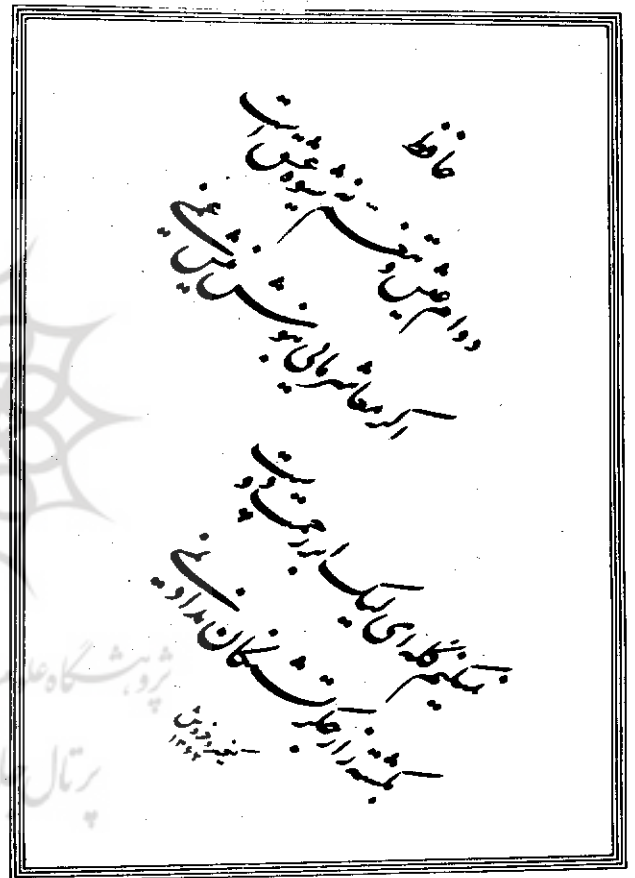 حافظ
دوام عیش و تنعم نه شیوه عشق است
اگر معاشر مائی بنوش نیش غمی
نمیکنم گله‌ای لیک ابر رحمت دوست
بکشته‌زار جگر تشنگان نداد نمی
۱۳۶۳
پژوهشگاه علوم
پرتال جا